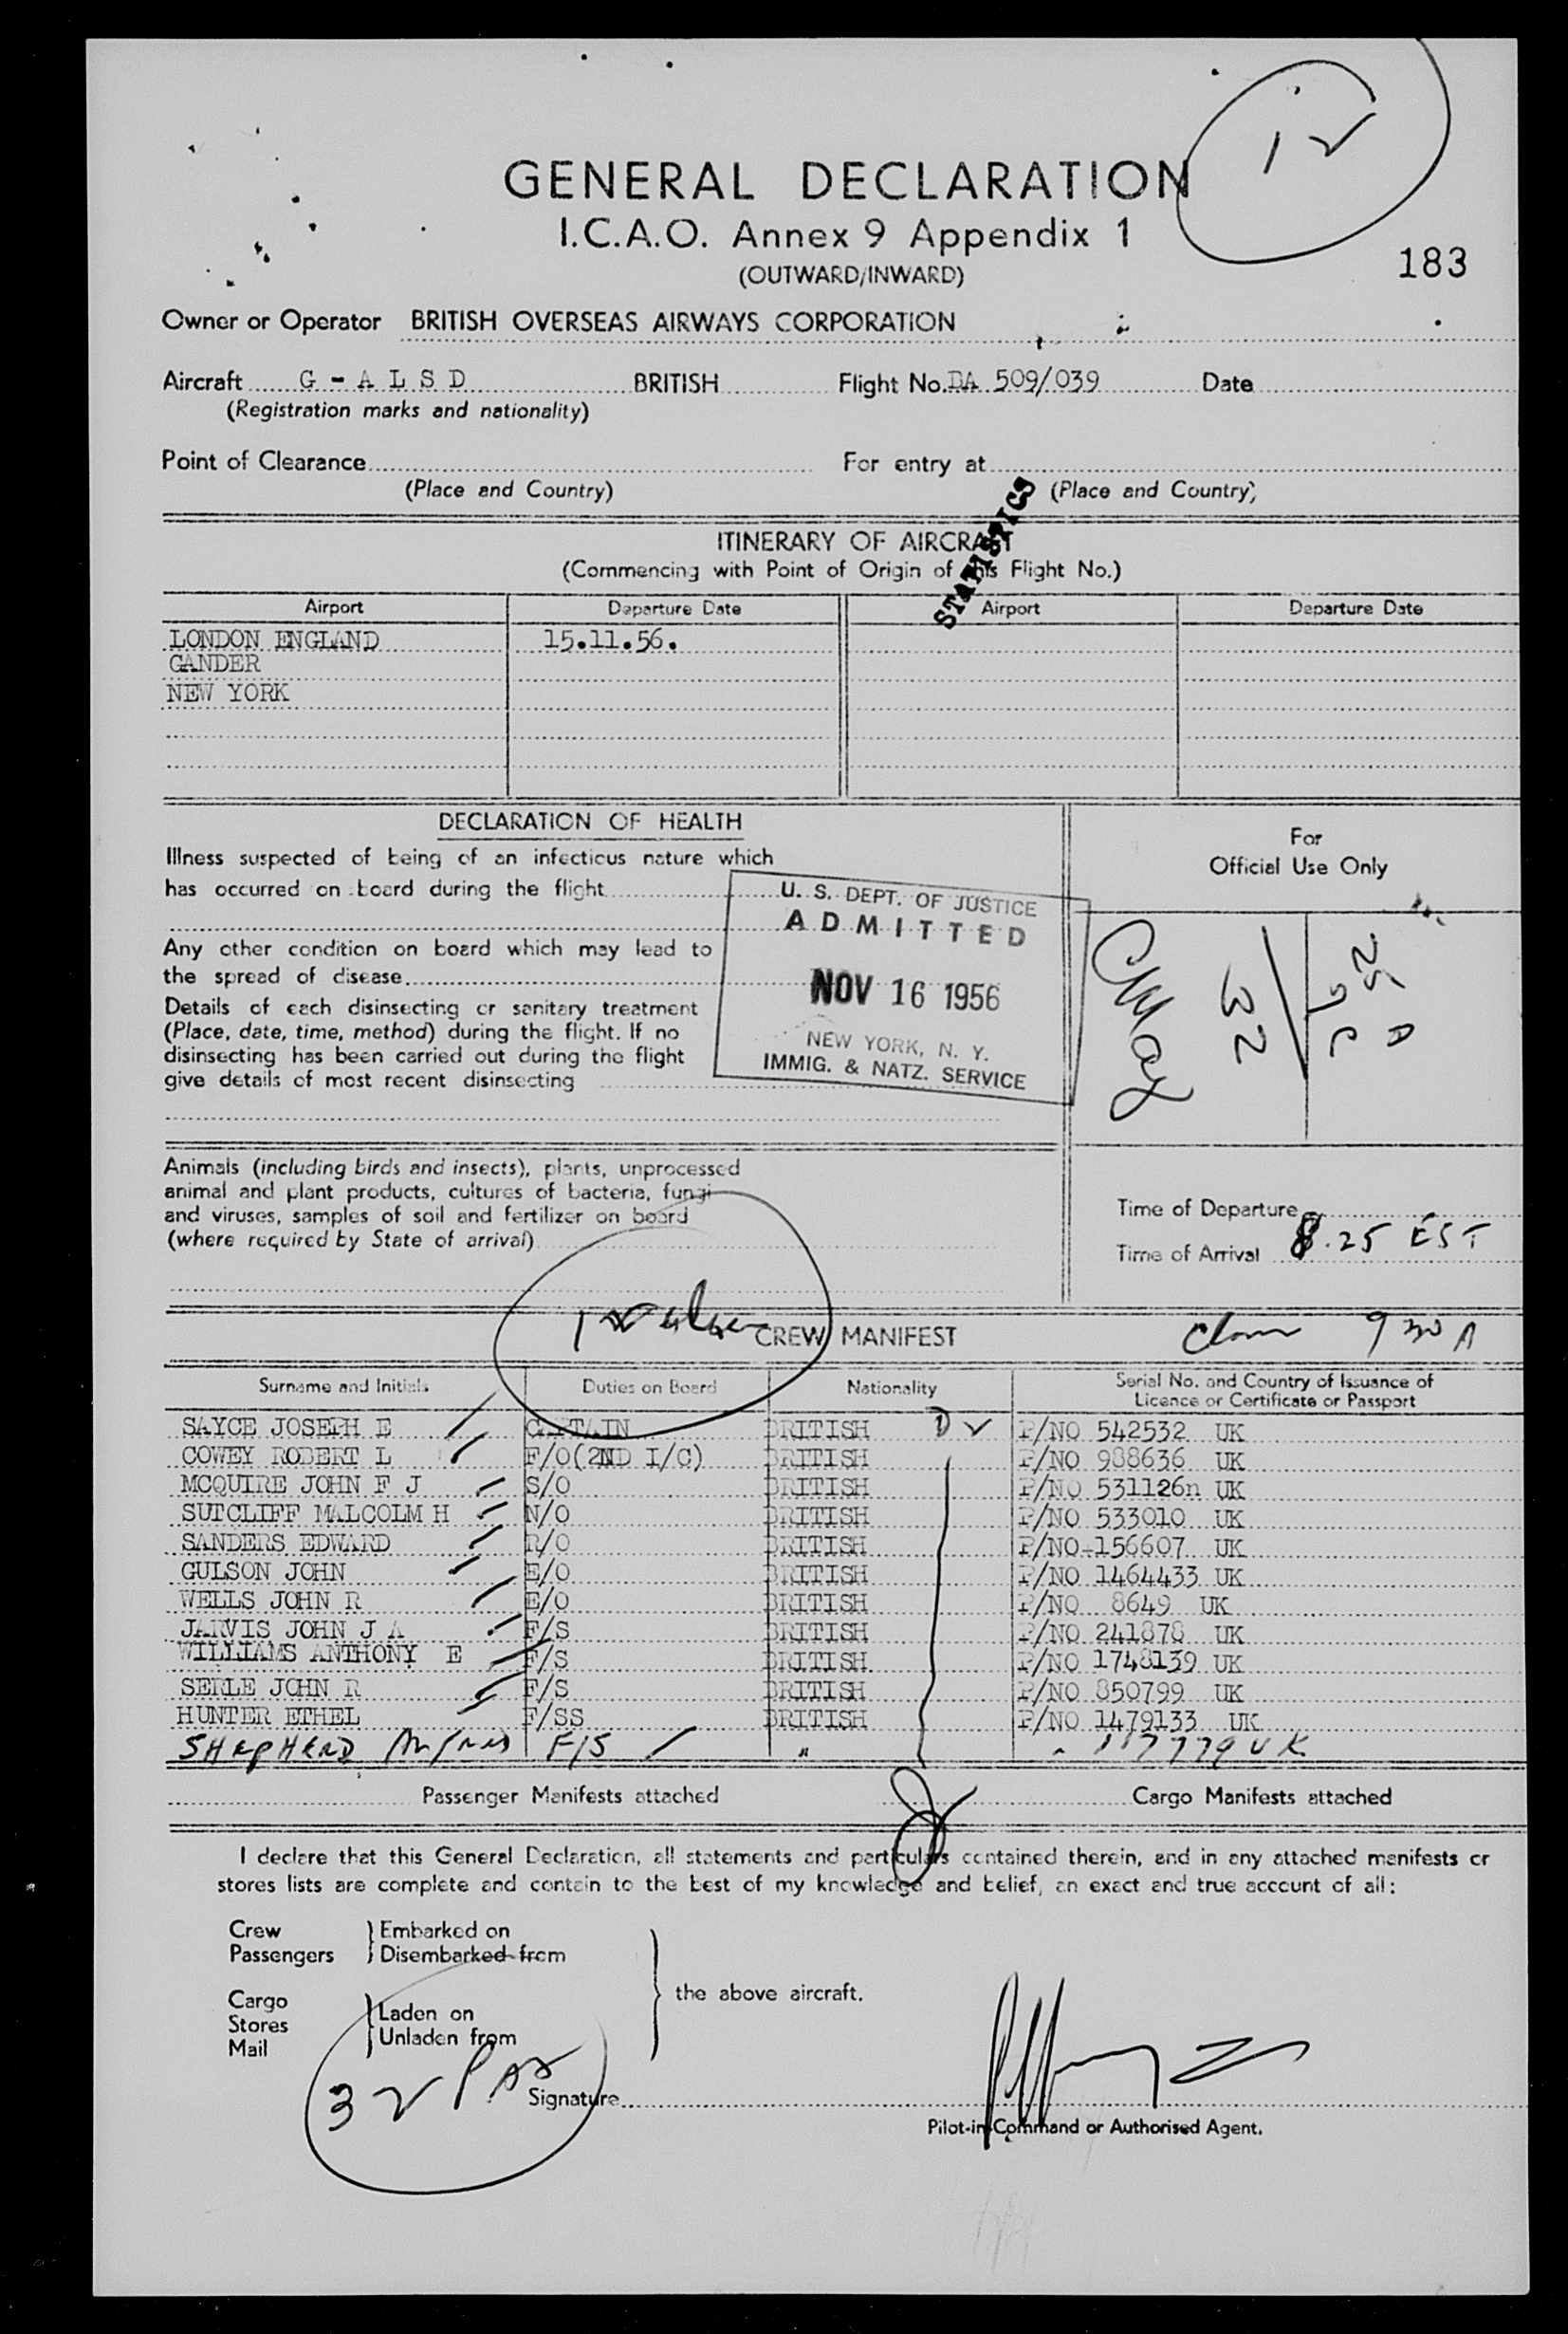 12
GENERAL DECLARATION
I.C.A.O. Annex 9 Appendix 1
(OUTWARD/INWARD)
183
Owner or Operator BRITISH OVERSEAS AIRWAYS CORPORATION
Aircraft G - A L S D BRITISH Flight No. BA 509/039 Date
(Registration marks and nationality)
Point of Clearance For entry at
(Place and Country) (Place and Country)
STATISTICS
ITINERARY OF AIRCRAFT
(Commencing with Point of Origin of this Flight No.)
Airport Departure Date Airport Departure Date
LONDON ENGLAND 15.11.56.
GANDER
NEW YORK
DECLARATION OF HEALTH
For
Official Use Only
Illness suspected of being of an infectious nature which
has occurred on board during the flight
Any other condition on board which may lead to
the spread of disease
Details of each disinsecting or sanitary treatment
(Place, date, time, method) during the flight. If no
disinsecting has been carried out during the flight
give details of most recent disinsecting
U. S. DEPT. OF JUSTICE
ADMITTED
NOV 16 1956
NEW YORK, N. Y.
IMMIG. & NATZ. SERVICE
32
25 A
Animals (including birds and insects), plants, unprocessed
animal and plant products, cultures of bacteria, fungi
and viruses, samples of soil and fertilizer on board
(where required by State of arrival)
Time of Departure
Time of Arrival 8.25 EST
12
CREW MANIFEST
930 A
Surname and Initials Duties on Board Nationality Serial No. and Country of Issuance of
Licence or Certificate or Passport
SAYCE JOSEPH E CAPTAIN BRITISH P/NO 542532 UK
COWEY ROBERT L F/O(2ND I/C) BRITISH P/NO 988636 UK
MCQUIRE JOHN F J S/O BRITISH P/NO 531126n UK
SUTCLIFF MALCOLM H N/O BRITISH P/NO 533010 UK
SANDERS EDWARD R/O BRITISH P/NO 156607 UK
GULSON JOHN E/O BRITISH P/NO 1464433 UK
WELLS JOHN R E/O BRITISH P/NO 8649 UK
JARVIS JOHN J A F/S BRITISH P/NO 241878 UK
WILLIAMS ANTHONY E F/S BRITISH P/NO 1748139 UK
SERLE JOHN R F/S BRITISH P/NO 850799 UK
HUNTER ETHEL F/SS BRITISH P/NO 1479133 UK
SHEPHERD F/S " " 117779 UK
Passenger Manifests attached Cargo Manifests attached
I declare that this General Declaration, all statements and particulars contained therein, and in any attached manifests or
stores lists are complete and contain to the best of my knowledge and belief, an exact and true account of all:
Crew Embarked on
Passengers Disembarked from
the above aircraft.
Cargo
Stores Laden on
Mail Unladen from
32 PAX
Signature
Pilot-in-Command or Authorised Agent.